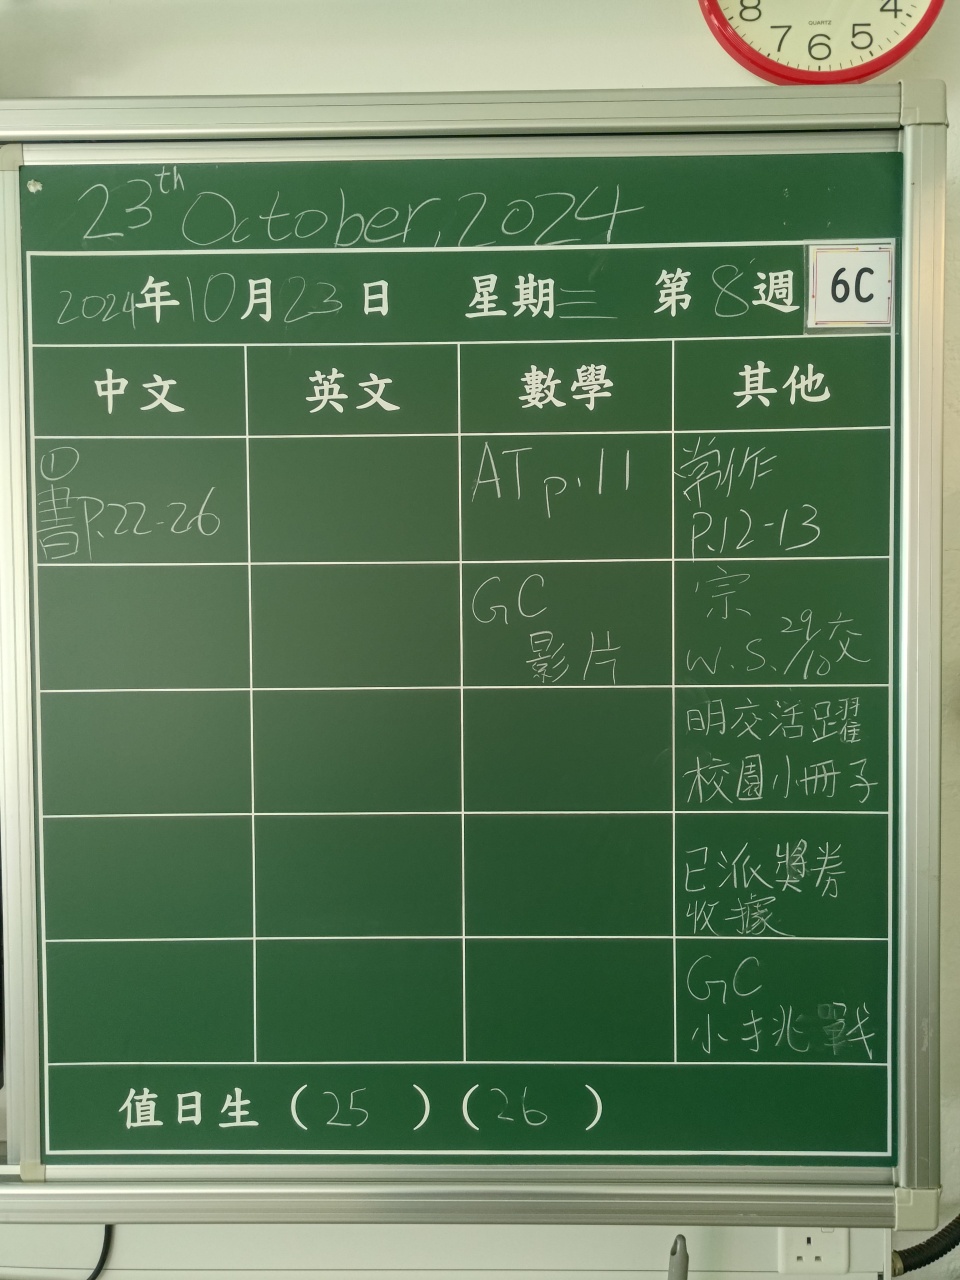 8 7 6 5 4
QUARTZ
23th October, 2024
2024年10月23日 星期三 第8週 6C
中文 英文 數學 其他
①
書P.22-26
AT p.11
常作
P.12-13
GC
影片
宗
W.S. 29/10交
明交活躍
校園小冊子
已派獎券
收據
GC
小挑戰
值日生（25）（26）